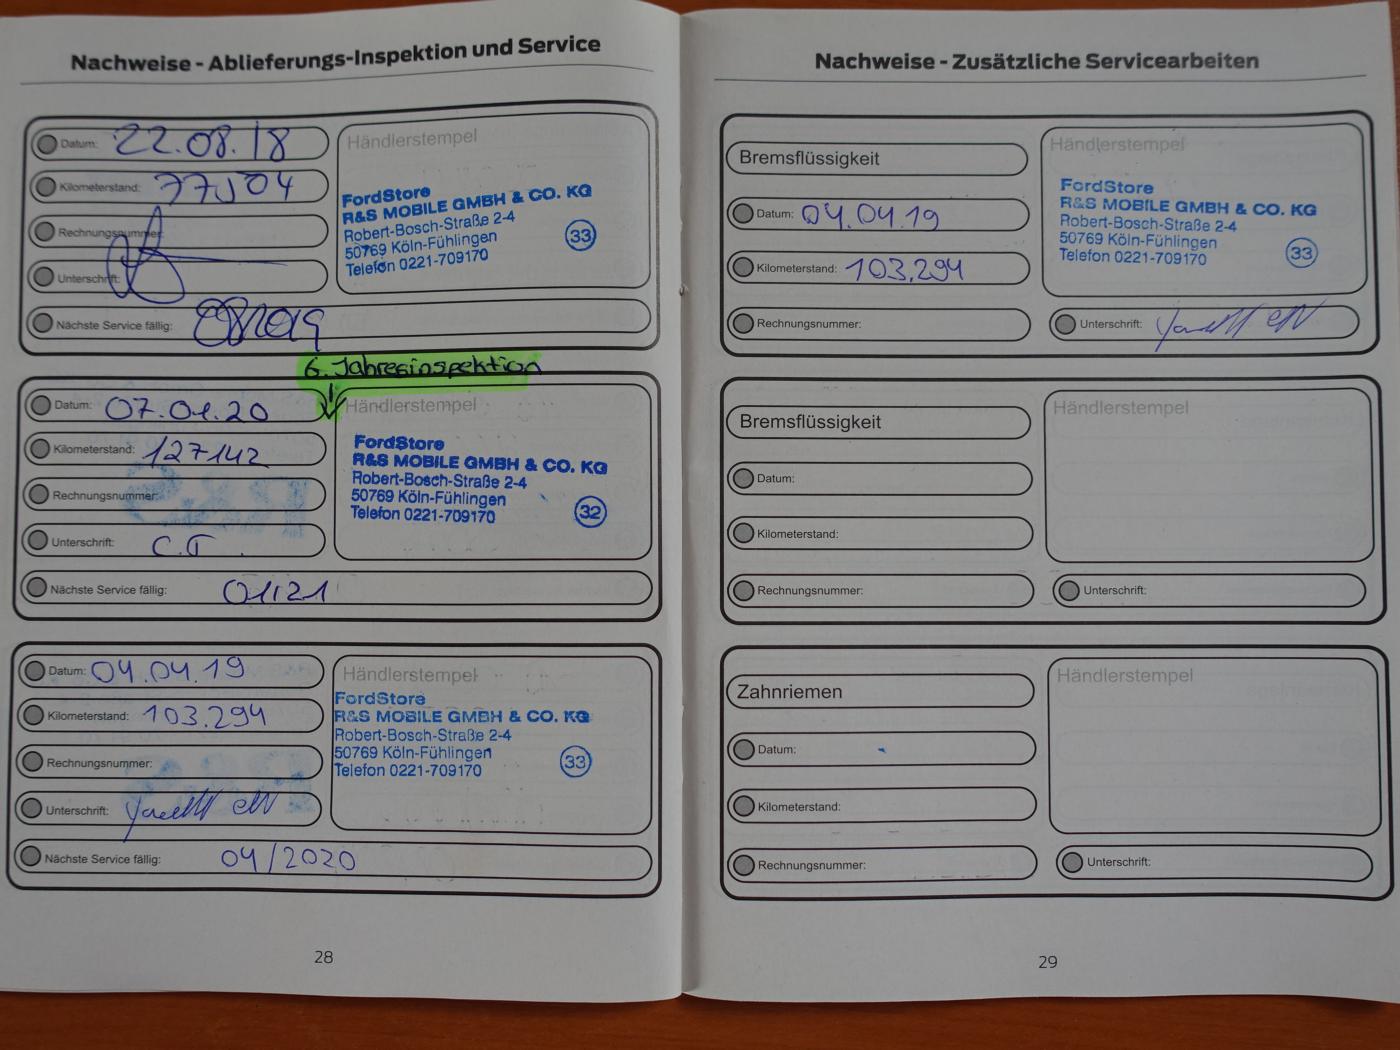 Nachweise - Ablieferungs-Inspektion und Service
Datum: 22.08.18
Kilometerstand:
Rechnungsnummer:
Unterschrift:
Nächste Service fällig:
Händlerstempel
FordStore
R&S MOBILE GMBH & CO. KG
Robert-Bosch-Straße 2-4
50769 Köln-Fühlingen
Telefon 0221-709170
33
6. Jahresinspektion
Datum: 07.01.20
Kilometerstand: 127142
Rechnungsnummer:
Unterschrift: C.T.
Nächste Service fällig: 01/21
Händlerstempel
FordStore
R&S MOBILE GMBH & CO. KG
Robert-Bosch-Straße 2-4
50769 Köln-Fühlingen
Telefon 0221-709170
32
Datum: 04.04.19
Kilometerstand: 103.294
Rechnungsnummer:
Unterschrift:
Nächste Service fällig: 04/2020
Händlerstempel
FordStore
R&S MOBILE GMBH & CO. KG
Robert-Bosch-Straße 2-4
50769 Köln-Fühlingen
Telefon 0221-709170
33
28
Nachweise - Zusätzliche Servicearbeiten
Bremsflüssigkeit
Datum: 04.04.19
Kilometerstand: 103.294
Rechnungsnummer:
Händlerstempel
FordStore
R&S MOBILE GMBH & CO. KG
Robert-Bosch-Straße 2-4
50769 Köln-Fühlingen
Telefon 0221-709170
33
Unterschrift:
Bremsflüssigkeit
Datum:
Kilometerstand:
Rechnungsnummer:
Händlerstempel
Unterschrift:
Zahnriemen
Datum:
Kilometerstand:
Rechnungsnummer:
Händlerstempel
Unterschrift:
29